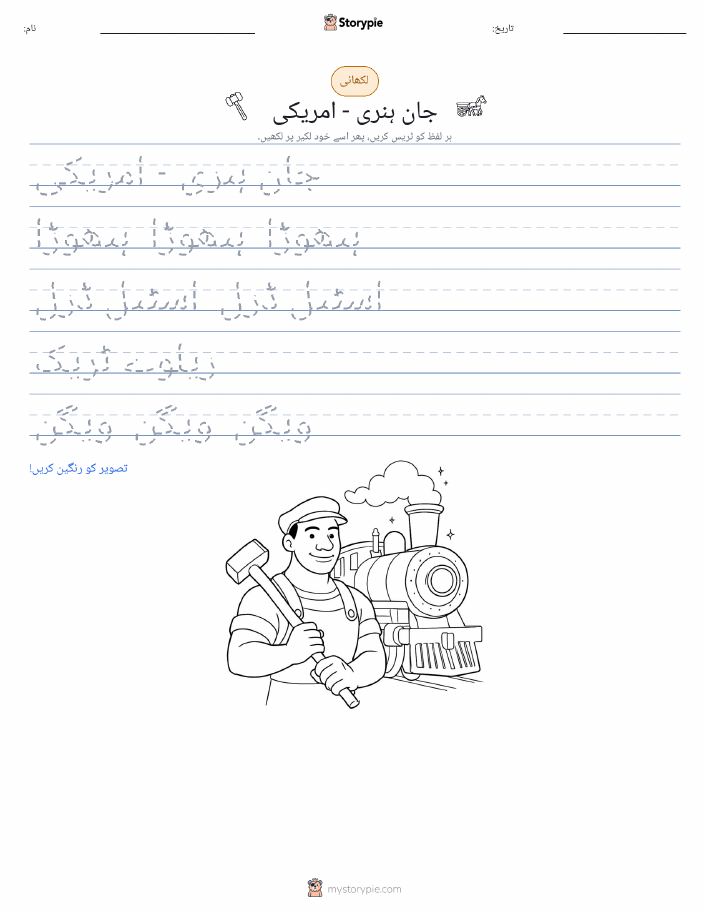 Storypie
نام:
تاریخ:
لکھائی
جان ہنری - امریکی
ہر لفظ کو ٹریس کریں، پھر اسے خود لکیر پر لکھیں۔
جان ہنری - امریکی
ہتھوڑا ہتھوڑا ہتھوڑا
اسٹیل ڈرل اسٹیل ڈرل
ریلوے ٹریک
ویگن ویگن ویگن
تصویر کو رنگین کریں!
mystorypie.com